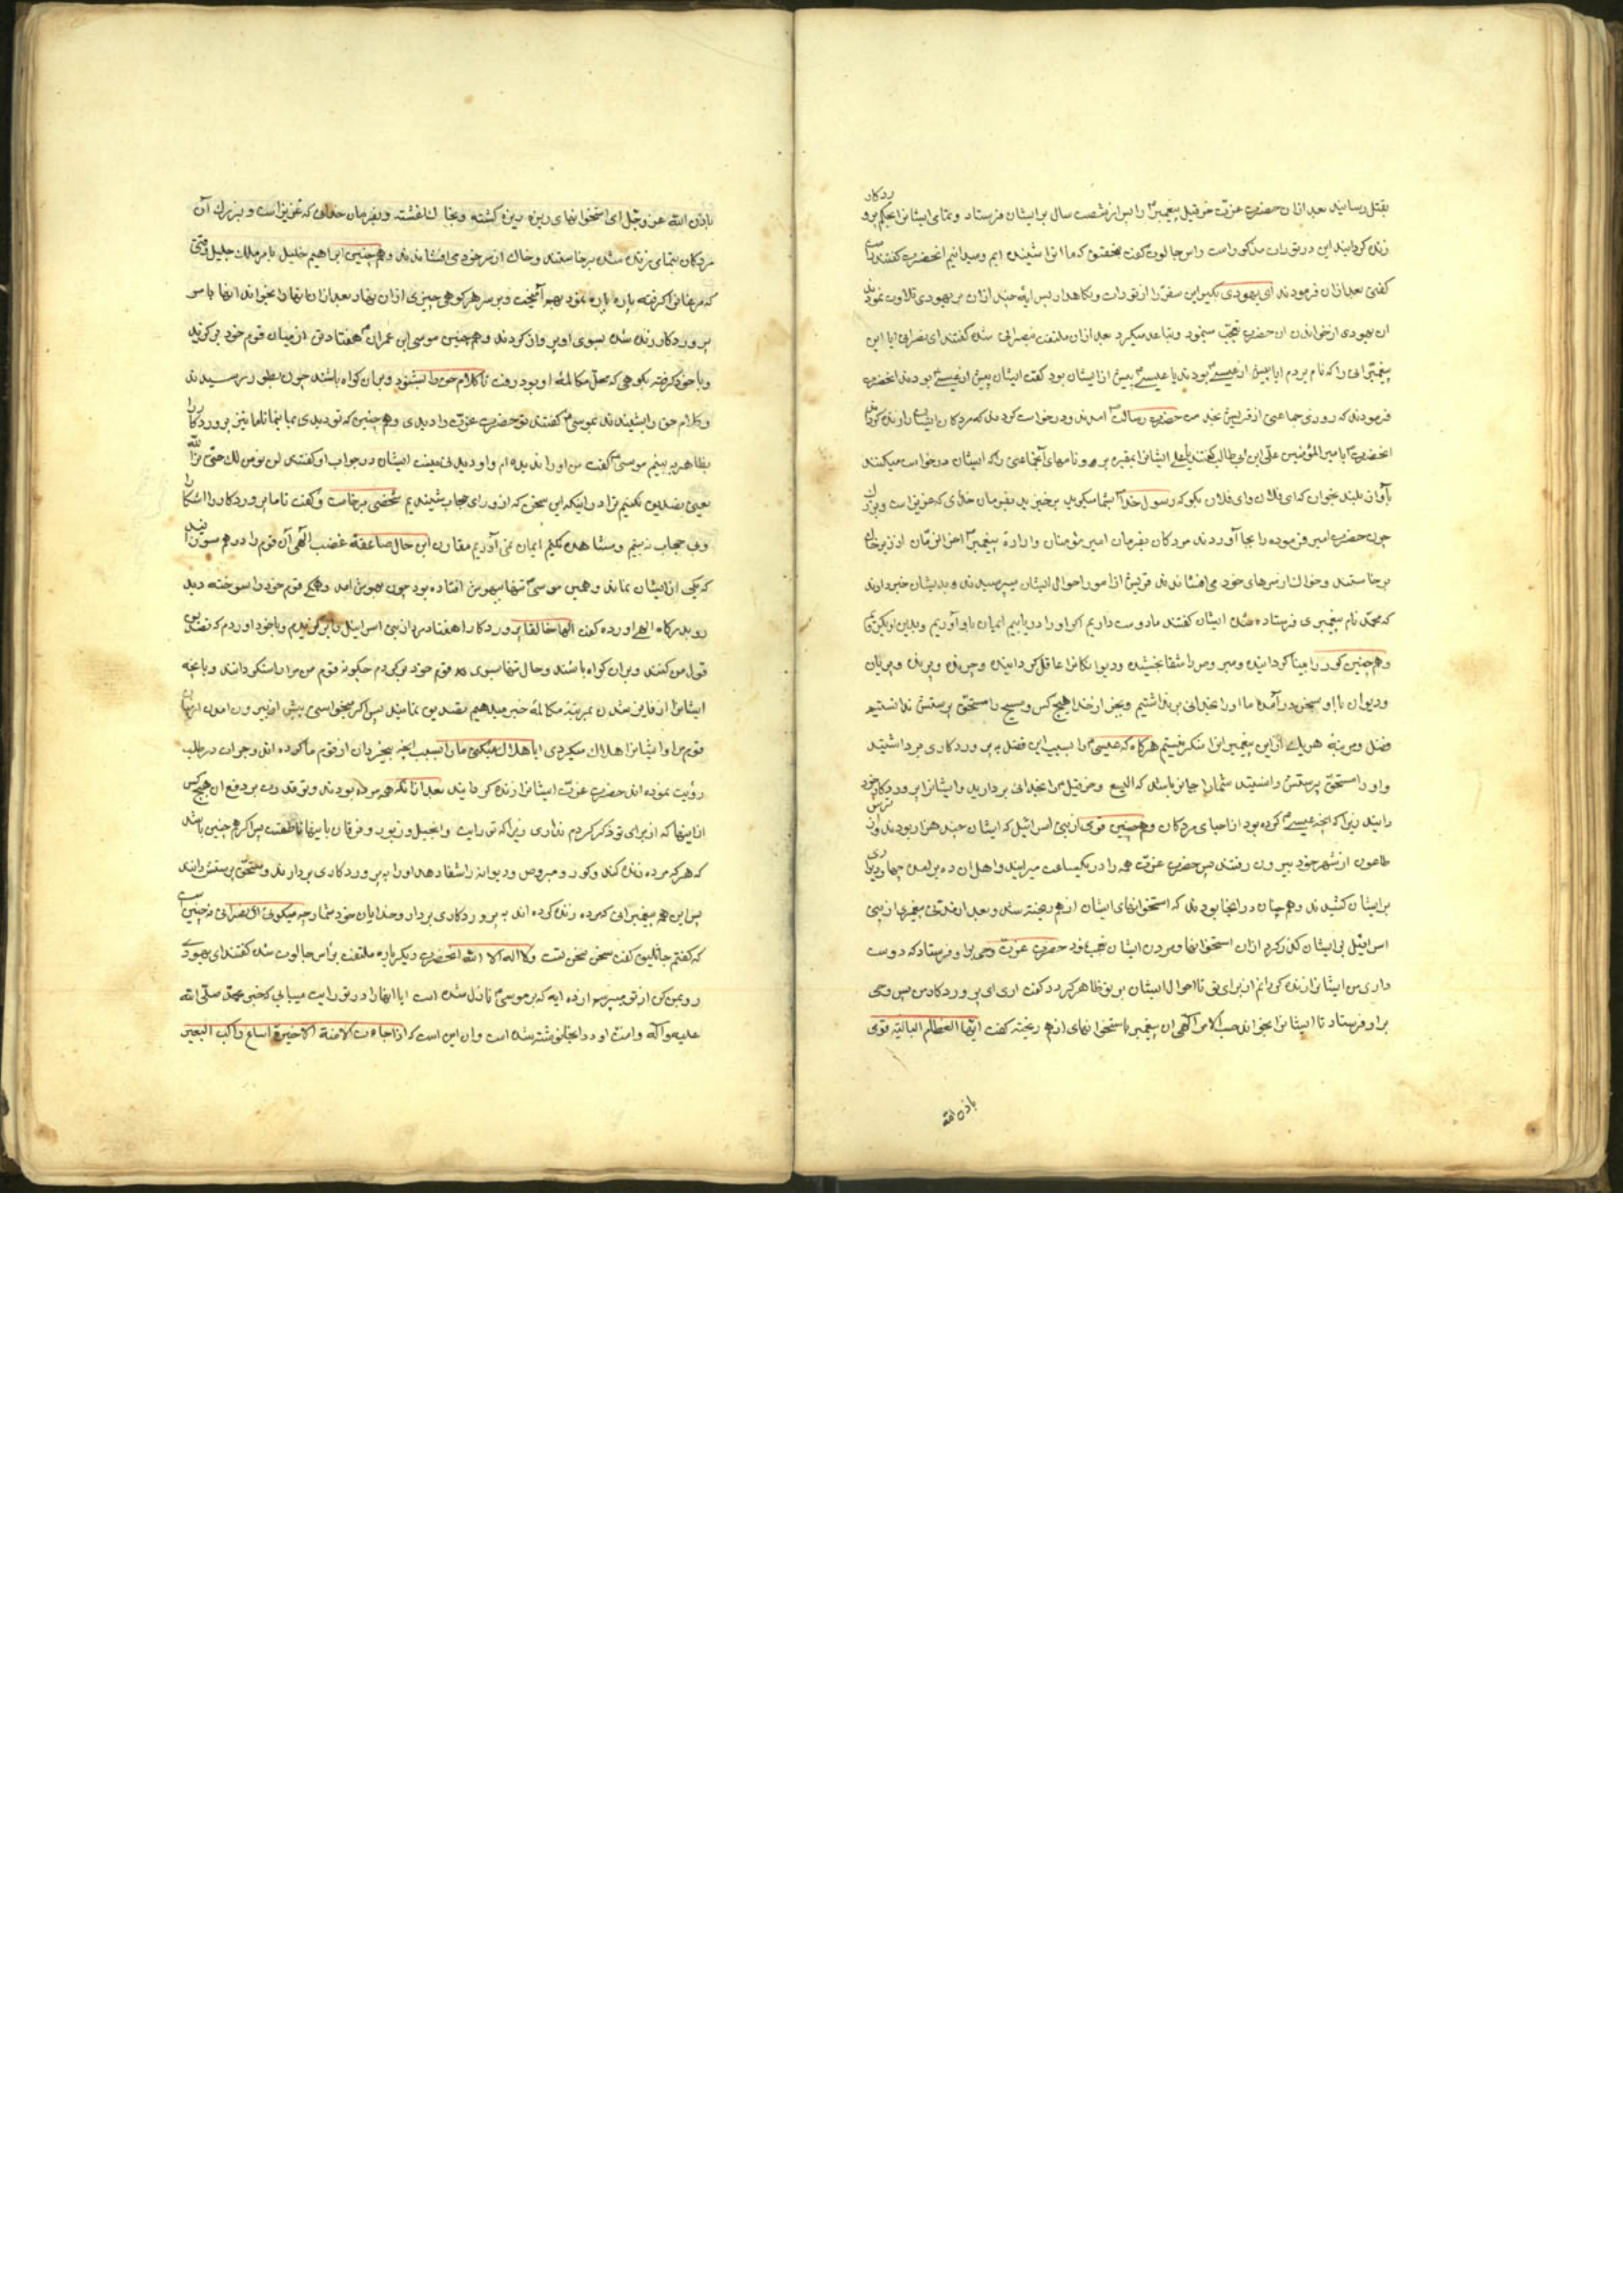 بقتل رسانید بعد ازان حضرت عزت حزقیل پیغمبر را پس از شصت سال بر ایشان فرستاد و تمامی ایشانرا بحکم پروردکار
زنده کردانید این در توریة مذکور است راس جالوت کفت بتحقیق که ما انرا شنیده ایم و میدانیم انحضرت کفتند راست
کفتی بعد ازان فرمودند ای یهودی بکیر این سفر را از تورات ونکاهدار پس ایهٔ چند ازان بر یهودی تلاوت نمودند
ان یهودی از خواندن ان حضرت تعجب مینمود میکرد بعد ازان ملتفت بنصرانی شده کفتند ای نصرانی ایا این
پیغمبرانی را که نام بردم ایا پیش از عیسی بودند یا عیسی پیش از ایشان بود کفت ایشان پیش از عیسی بودند انحضرت
فرمودند که روزی جماعتی از قریش بخدمت حضرت رسالت امدند ودرخواست کردند که مردکان ایشان را زنده کرداند
انحضرت بامیر المؤمنین علی ابن ابی طالب کفتند یا علی ایشانرا بمقبره بر و نامهای انجماعتی را که ایشان درخواست میکنند
بآواز بلند بخوان که ای فلان وای فلان بکو که رسول خدا بشما میکوید برخیزید بفرمان خدای که عزیز است وبزرک
چون حضرت امیر فرموده را بجا آوردند مردکان بفرمان امیر مؤمنان وارادهٔ پیغمبر آخر الزمان از زیر خاک
برخاستند وخاک از سرهای خود می افشاندند قریش از امور احوال ایشان میپرسیدند وبدیشان خبر دادند
که محمد نام پیغمبری فرستاده شده ایشان کفتند ما دوست داریم که او را دریابیم ایمان باو آوریم
وهمچنین کور را بینا کردانیده ومبروص را شفا بخشیده ودیوانکانرا عاقل کردانیده وچرنده وپرنده وپریان
ودیوان با او بسخن درآمدند ما او را بخدائی برنداشتیم وبجز از خدا هیچ کس ومسیح را مستحق پرستش ندانستیم
فضل ومرتبه هریک از این پیغمبرانرا منکر نیستیم هرکاه که عیسی را بسبب این فضل به پروردکاری برداشتید
واو را مستحق پرستش دانستید شمارا جایز باشد که الیسع وحزقیل را بخدائی بردارید وایشانرا پروردکار خود
دانید زیرا که انچه عیسی کرده بود از احیای مردکان وهمچنین قومی از بنی اسرائیل که ایشان چند هزار بودند واز ترس
طاعون از شهر خود بیرون رفتند پس حضرت عزت همه را در یکساعت میرانید واهل ان ده برامدند چهار دیواری
بر ایشان کشیدند وهمچنان در انجا بودند که استخوانهای ایشان ازهم ریخته شد وبعد از مدتی پیغمبری از بنی
اسرائیل بر ایشان کذر کرد ازان استخوانها ومردن ایشان تعجب نمود حضرت عزت وحی براو فرستاد که دوست
داری من ایشانرا زنده کردانم از برای تو تا احوال ایشان بر تو ظاهر کردد کفت اری ای پروردکار من پس وحی
براو فرستاد تا ایشانرا بخواند حسب الامر الهی ان پیغمبر باستخوانهای ازهم ریخته کفت ایتها العظام البالیة قومی
باذن الله
باذن الله عز وجل ای استخوانهای ریزه ریزه کشته وبخاک اغشته بفرمان خدای که عزیز است وبزرک آن
مردکان بتمامی زنده شده برخاستند وخاک از سر خود می افشاندند وهمچنین ابراهیم خلیل بامر ملک جلیل وقتی
که مرغانرا کرفته پاره پاره نمود بهم آمیخت وبر سر هر کوهی چیزی ازان نهاد بعد ازان انها را بخواند انها بامر
پروردکار زنده شده بسوی او پرواز کردند وهمچنین موسی ابن عمران هفتاد تن از میان قوم خود برکزید
وباخود کرفته بکوهی که محل مکالمهٔ او بود رفت تا کلام حق را بشنود وبران کواه باشند چون بطور رسیدند
وکلام حق را شنیدند بموسی کفتند تو حضرت عزت را دیدی وهمچنین که تو دیدی بما بنما تا ما نیز پروردکار را
بظاهر به بینیم موسی کفت من او را ندیده ام ایشان در جواب او کفتند لن نؤمن لک حتی نری الله
یعنی تصدیق نکنیم ترا در اینکه این سخن که از ورای حجاب شنیدیم شخصی برخاست وکفت تا ما پروردکار را اشکارا
وبی حجاب نه بینیم ومشاهده نکنیم ایمان نمی آوریم مقارن این حال صاعقهٔ غضب الهی آن قوم را درهم سوزانید
که یکی از ایشان نماند وهمین موسی تنها بیهوش افتاده بود چون بهوش امد وهمکی قوم خود را سوخته دید
رو بدرکاه الهی اورده کفت الها خالقا پروردکارا هفتاد مرد از بنی اسرائیل را برکزیدم وباخود اوردم که تصدیق
قول من کنند وبران کواه باشند وحال تنها بسوی قوم خود برکردم چکونه قوم من مرا راستکو دانند وبانچه
ایشانرا از فایز شدن بمرتبهٔ مکالمه خبر میدهم تصدیق نمایند پس اکر میخواستی پیش از بیرون امدن از میان
قوم مرا وایشانرا هلاک میکردی ایا هلاک میکنی مارا بسبب انچه بیخردان از قوم ما کرده اند وجرات در طلب
رؤیت نموده اند حضرت عزت ایشانرا زنده کردانید بعد ازانکه همه مرده بودند وتو قدرت بر دفع ان هیچ کس
از اینها که از برای تو ذکر کردم نداری زیرا که توریت وانجیل وزبور وفرقان باینها ناطقست پس اکر همچنین باشد
که هرکه مرده زنده کند وکور ومبروص ودیوانه را شفا دهد او را به پروردکاری بردارند ومستحق پرستش دانند
پس این همه پیغمبرانی که مرده زنده کرده اند به پروردکاری بردار وخدایان خود شمار چه میکوئی ای نصرانی نه چنین است
که کفتم جاثلیق کفت سخن سخن تست ولا اله الا الله انحضرت دیکر باره ملتفت براس جالوت شده کفتند ای یهودی
رو بمن کن از تو میپرسم از ده ایه که بر موسی نازل شده است ایا انها را در توریت مییابی که خبر محمد صلی الله
علیه وآله وامت او در انجا نوشته شده است وان این است که اذا جاءت الامة الاخیرة اتباع راکب البعیر